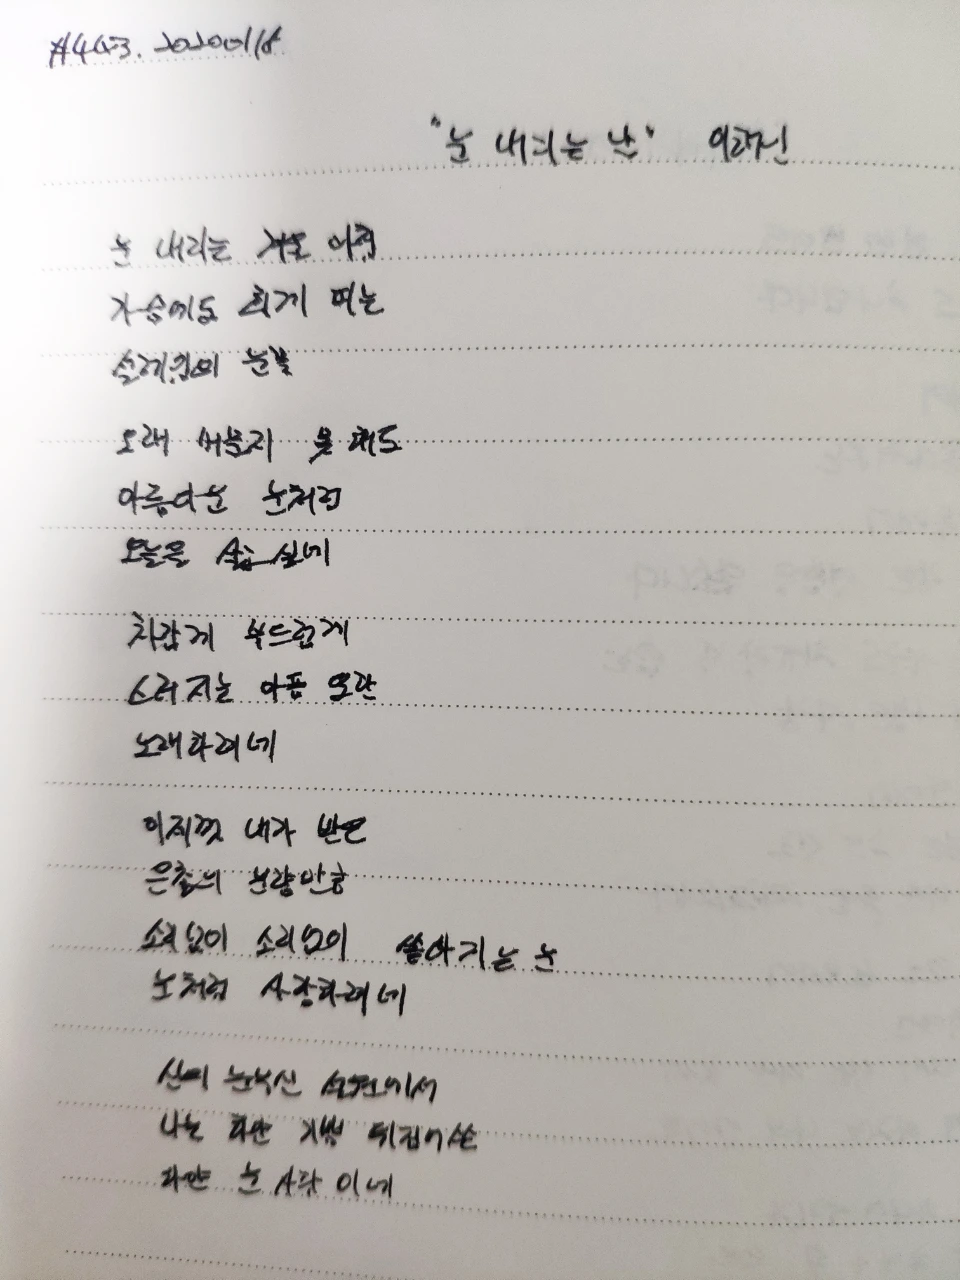 #443. 20200118
"눈 내리는 날" 이해인
눈 내리는 겨울 아침
가슴에도 희게 피는
설레임의 눈꽃
오래 머물지 못해도
아름다운 눈처럼
오늘을 살고 싶네
차갑게 부드럽게
스러지는 아픔 또한
노래하려네
이제껏 내가 받은
은총의 분량만큼
소리없이 소리없이 쏟아지는 눈
눈처럼 사랑하려네
신의 눈부신 설원에서
나는 하얀 기쁨 뒤집어쓴
하얀 눈사람이네